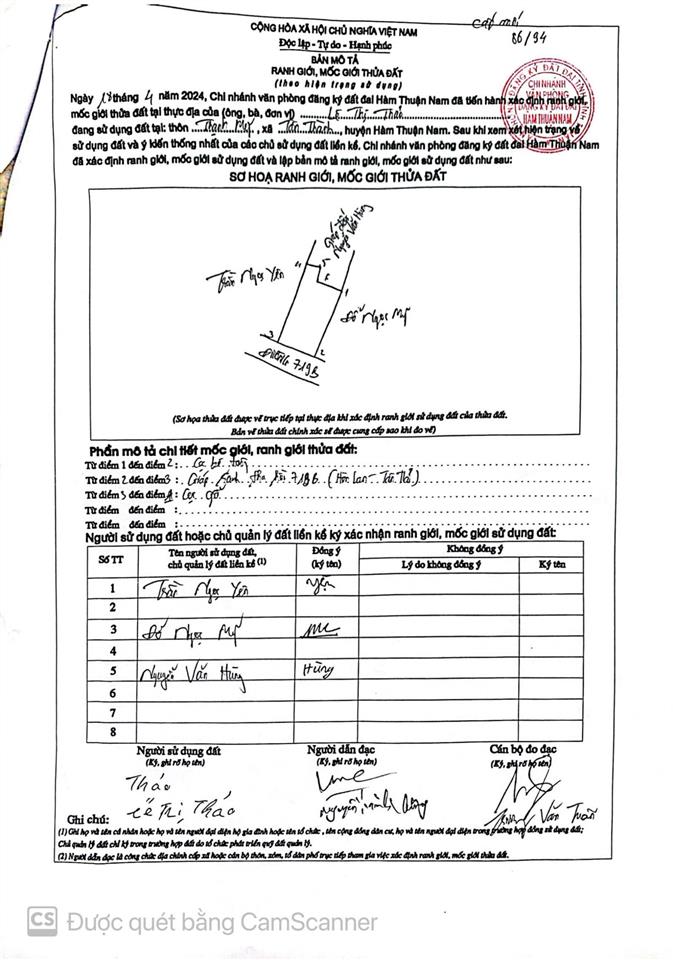 CỘNG HÒA XÃ HỘI CHỦ NGHĨA VIỆT NAM
Độc lập - Tự do - Hạnh phúc
86/94
BẢN MÔ TẢ
RANH GIỚI, MỐC GIỚI THỬA ĐẤT
(theo hiện trạng sử dụng)
CHI NHÁNH
VĂN PHÒNG
ĐĂNG KÝ ĐẤT ĐAI
HÀM THUẬN NAM
Ngày tháng 4 năm 2024, Chi nhánh văn phòng đăng ký đất đai Hàm Thuận Nam đã tiến hành xác định ranh giới,
mốc giới thửa đất tại thực địa của (ông, bà, đơn vị) Lê Thị Thảo
đang sử dụng đất tại: thôn Thanh, xã Tân Thành, huyện Hàm Thuận Nam. Sau khi xem xét hiện trạng về
sử dụng đất và ý kiến thống nhất của các chủ sử dụng đất liền kề. Chi nhánh văn phòng đăng ký đất đai Hàm Thuận Nam
đã xác định ranh giới, mốc giới sử dụng đất và lập bản mô tả ranh giới, mốc giới sử dụng đất như sau:
SƠ HOẠ RANH GIỚI, MỐC GIỚI THỬA ĐẤT
Giáp đất
Nguyễn Văn Hùng
Trần Ngọc Yên
4
5
6
1
Đỗ Ngọc Mỹ
3
2
ĐƯỜNG 719B
(Sơ họa thửa đất được vẽ trực tiếp tại thực địa khi xác định ranh giới sử dụng đất của thửa đất.
Bản vẽ thửa đất chính xác sẽ được cung cấp sao khi đo vẽ)
Phần mô tả chi tiết mốc giới, ranh giới thửa đất:
Từ điểm 1 đến điểm 2: Cọc bê tông
Từ điểm 2 đến điểm 3: Giáp 719B (Hòn Lan - Tân Hải)
Từ điểm 3 đến điểm 1: Cọc gỗ
Từ điểm đến điểm :
Từ điểm đến điểm :
Người sử dụng đất hoặc chủ quản lý đất liền kề ký xác nhận ranh giới, mốc giới sử dụng đất:
Số TT Tên người sử dụng đất, chủ quản lý đất liền kề (1) Đồng ý (ký tên) Không đồng ý
Lý do không đồng ý Ký tên
1 Trần Ngọc Yên Yên
2
3 Đỗ Ngọc Mỹ
4
5 Nguyễn Văn Hùng Hùng
6
7
8
Người sử dụng đất Người dẫn đạc Cán bộ đo đạc
(Ký, ghi rõ họ tên) (Ký, ghi rõ họ tên) (Ký, ghi rõ họ tên)
Thảo
Lê Thị Thảo Nguyễn Văn Tuấn
Ghi chú:
(1) Ghi họ và tên cá nhân hoặc họ và tên người đại diện hộ gia đình hoặc tên tổ chức , tên cộng đồng dân cư, họ và tên người đại diện trong trường hợp đồng sử dụng đất;
Chủ quản lý đất chỉ ký trong trường hợp đất do tổ chức phát triển quỹ đất quản lý.
(2) Người dẫn đạc là công chức địa chính cấp xã hoặc cán bộ thôn, xóm, tổ dân phố trực tiếp tham gia việc xác định ranh giới, mốc giới thửa đất.
CS Được quét bằng CamScanner